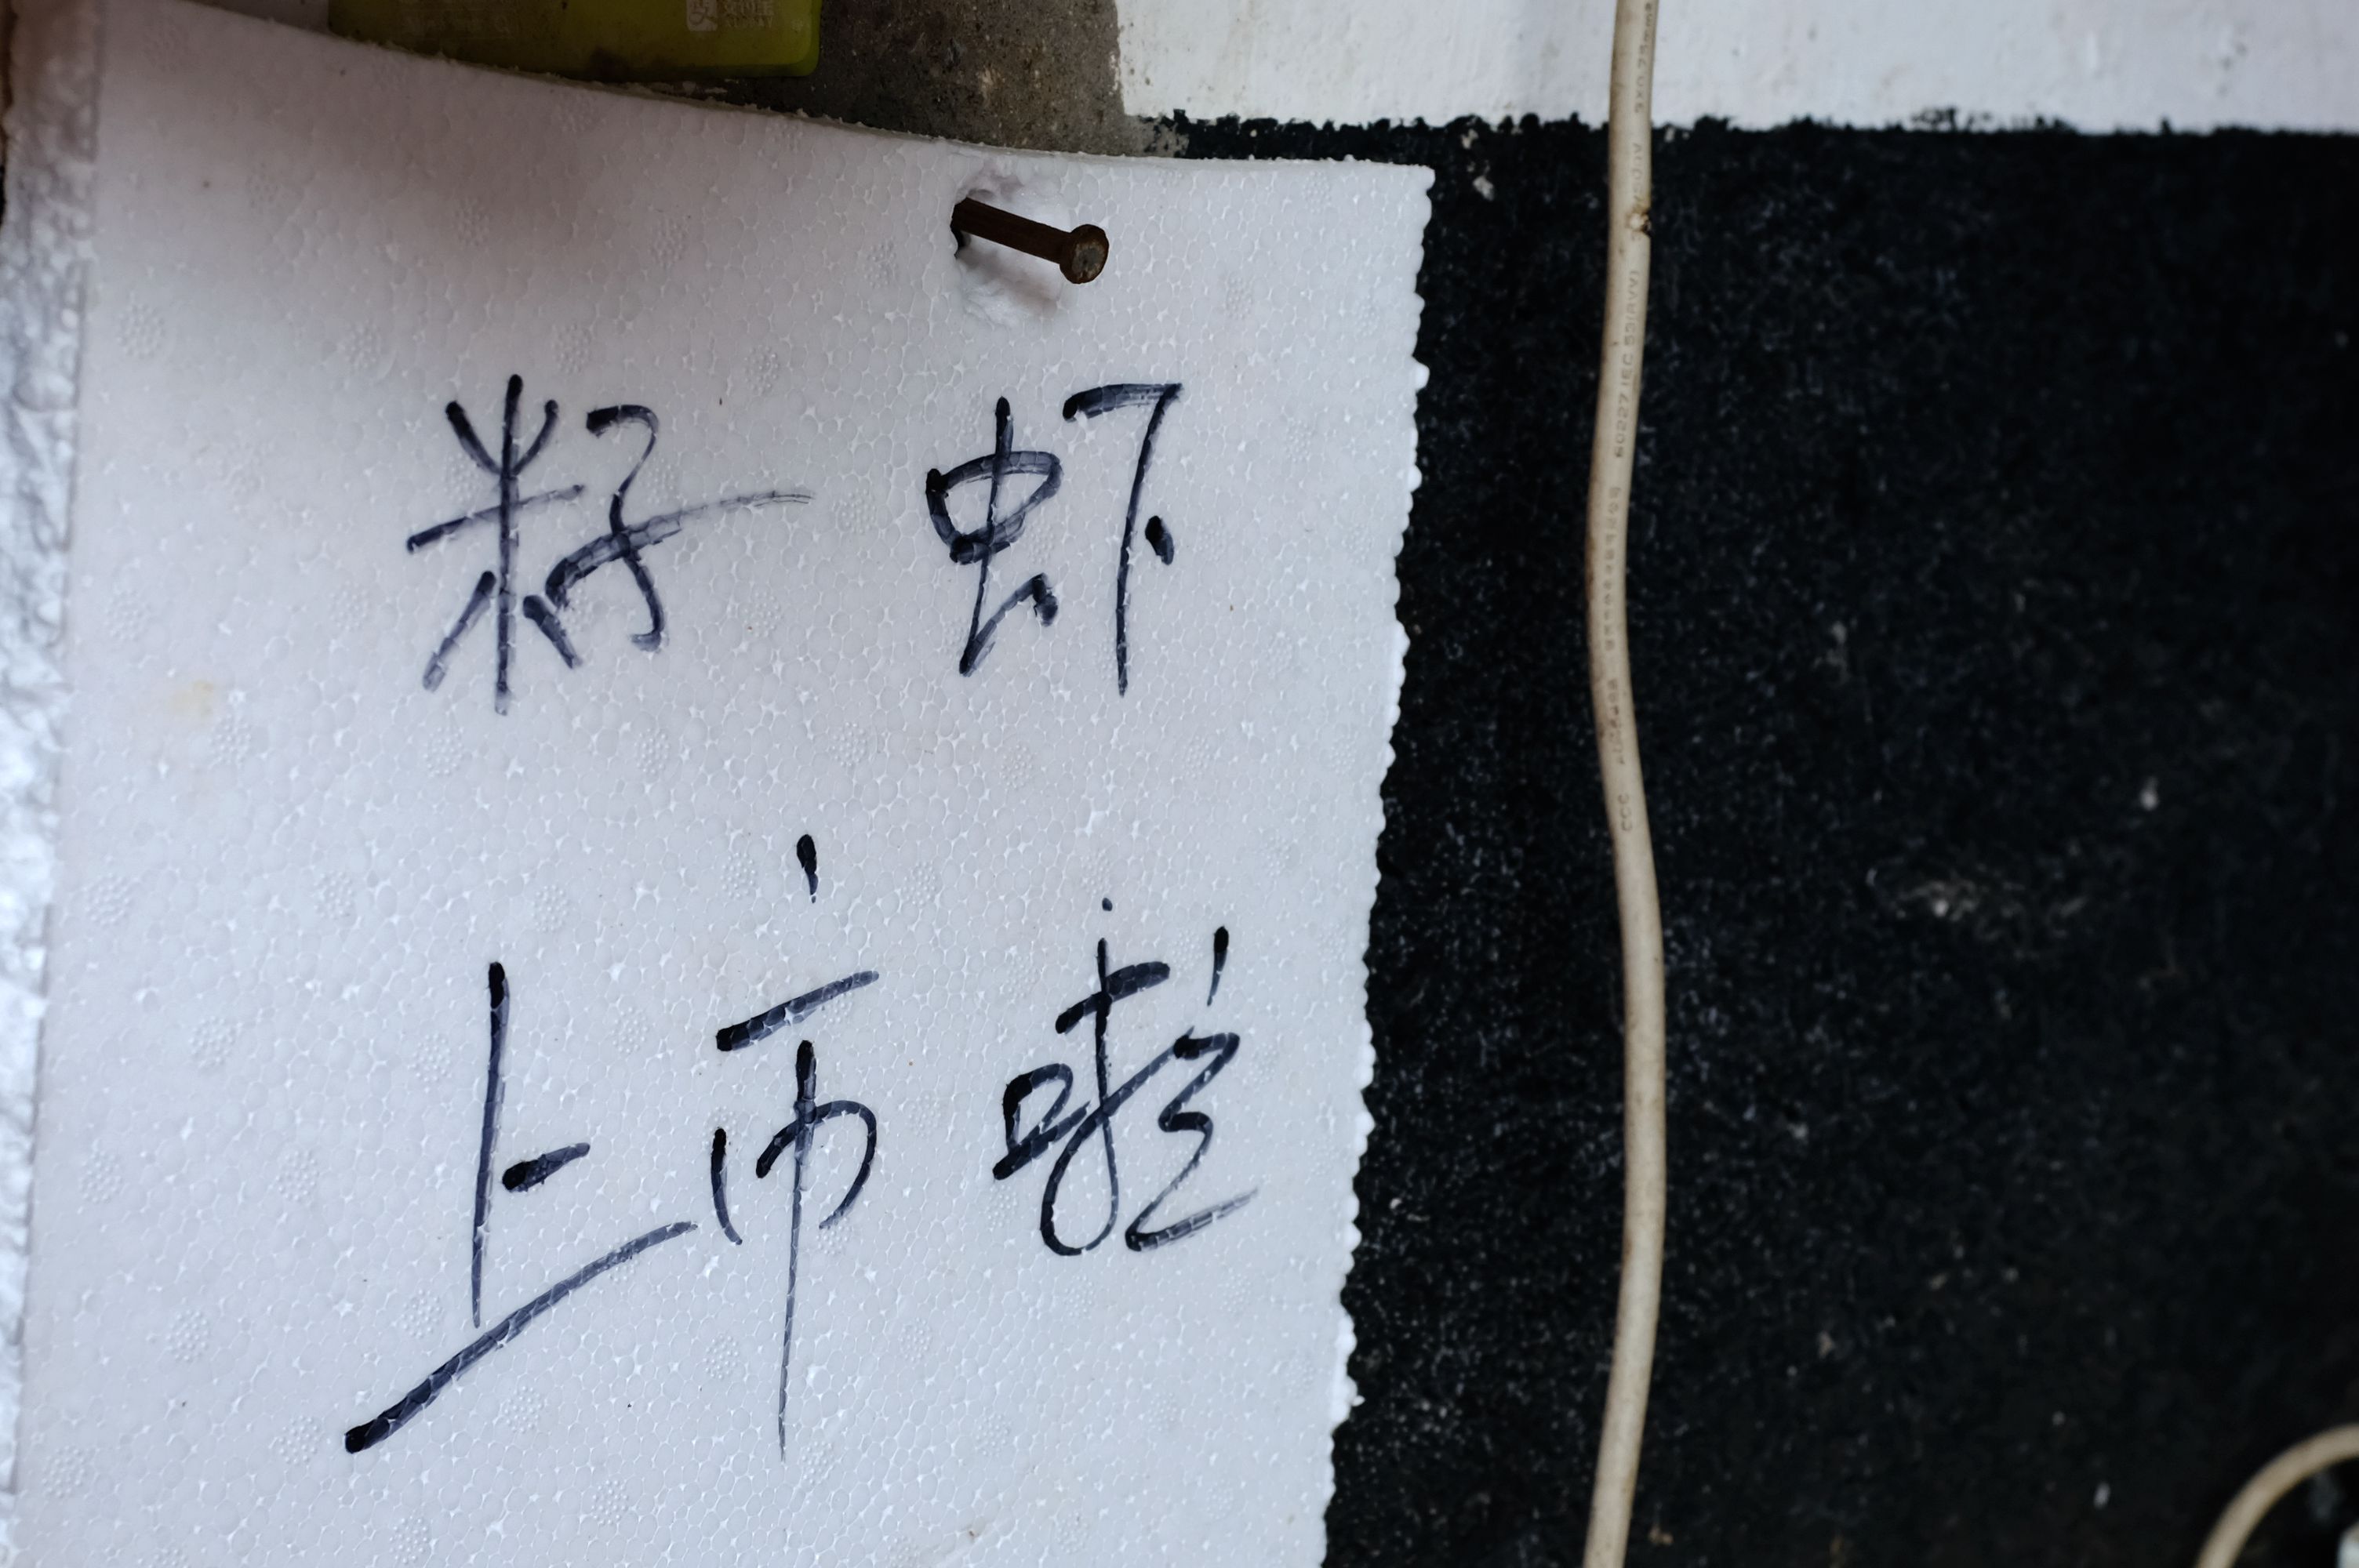 籽虾
上市啦